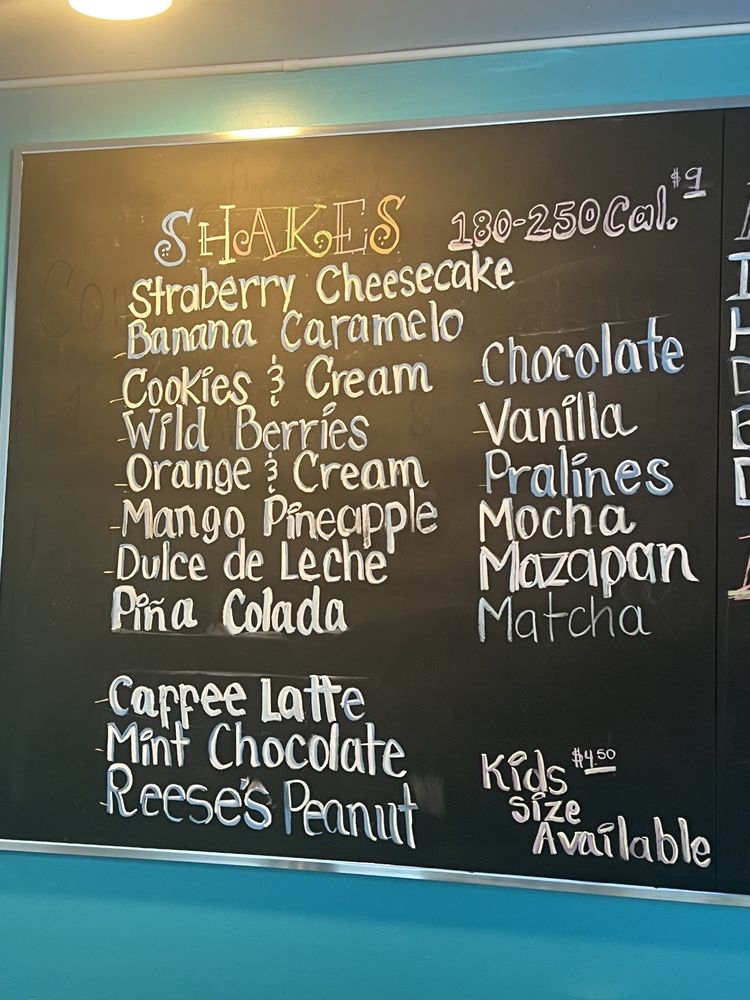 SHAKES 180-250 Cal. $9
Straberry Cheesecake
-Banana Caramelo
-Cookies & Cream
-Wild Berries
-Orange & Cream
-Mango Pineapple
-Dulce de Leche
Piña Colada
-Caffee Latte
-Mint Chocolate
-Reese's Peanut
-Chocolate
-Vanilla
Pralines
Mocha
Mazapan
Matcha
Kids $4.50
size
Available